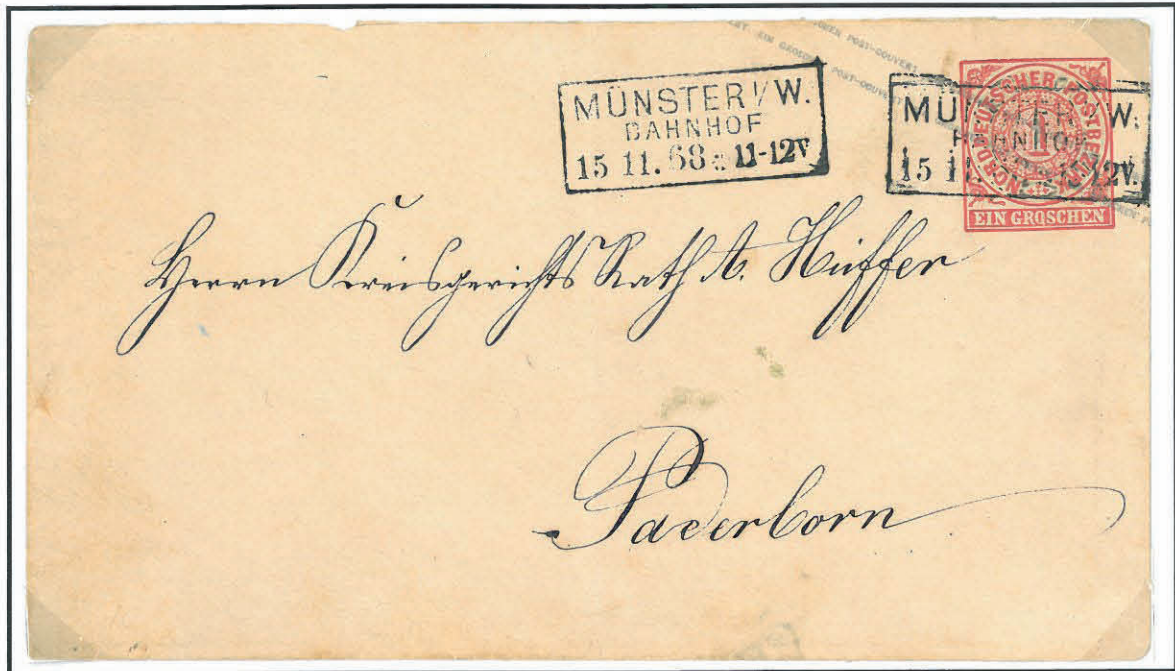 EIN GROSCHEN POST-COUVERT
MÜNSTER I/W.
BAHNHOF
15 11. 68 11-12V
MÜNSTER I/W.
BAHNHOF
15 11. 12V.
NORDDEUTSCHER POSTBEZIRK
1
EIN GROSCHEN
Herrn Kreisgerichts Rath A. Hüffer
Paderborn